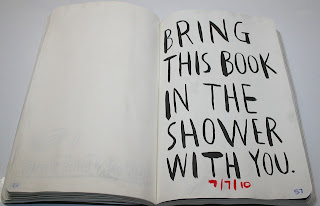 BRING
THIS BOOK
IN THE
SHOWER
WITH YOU.
9/7/10
57